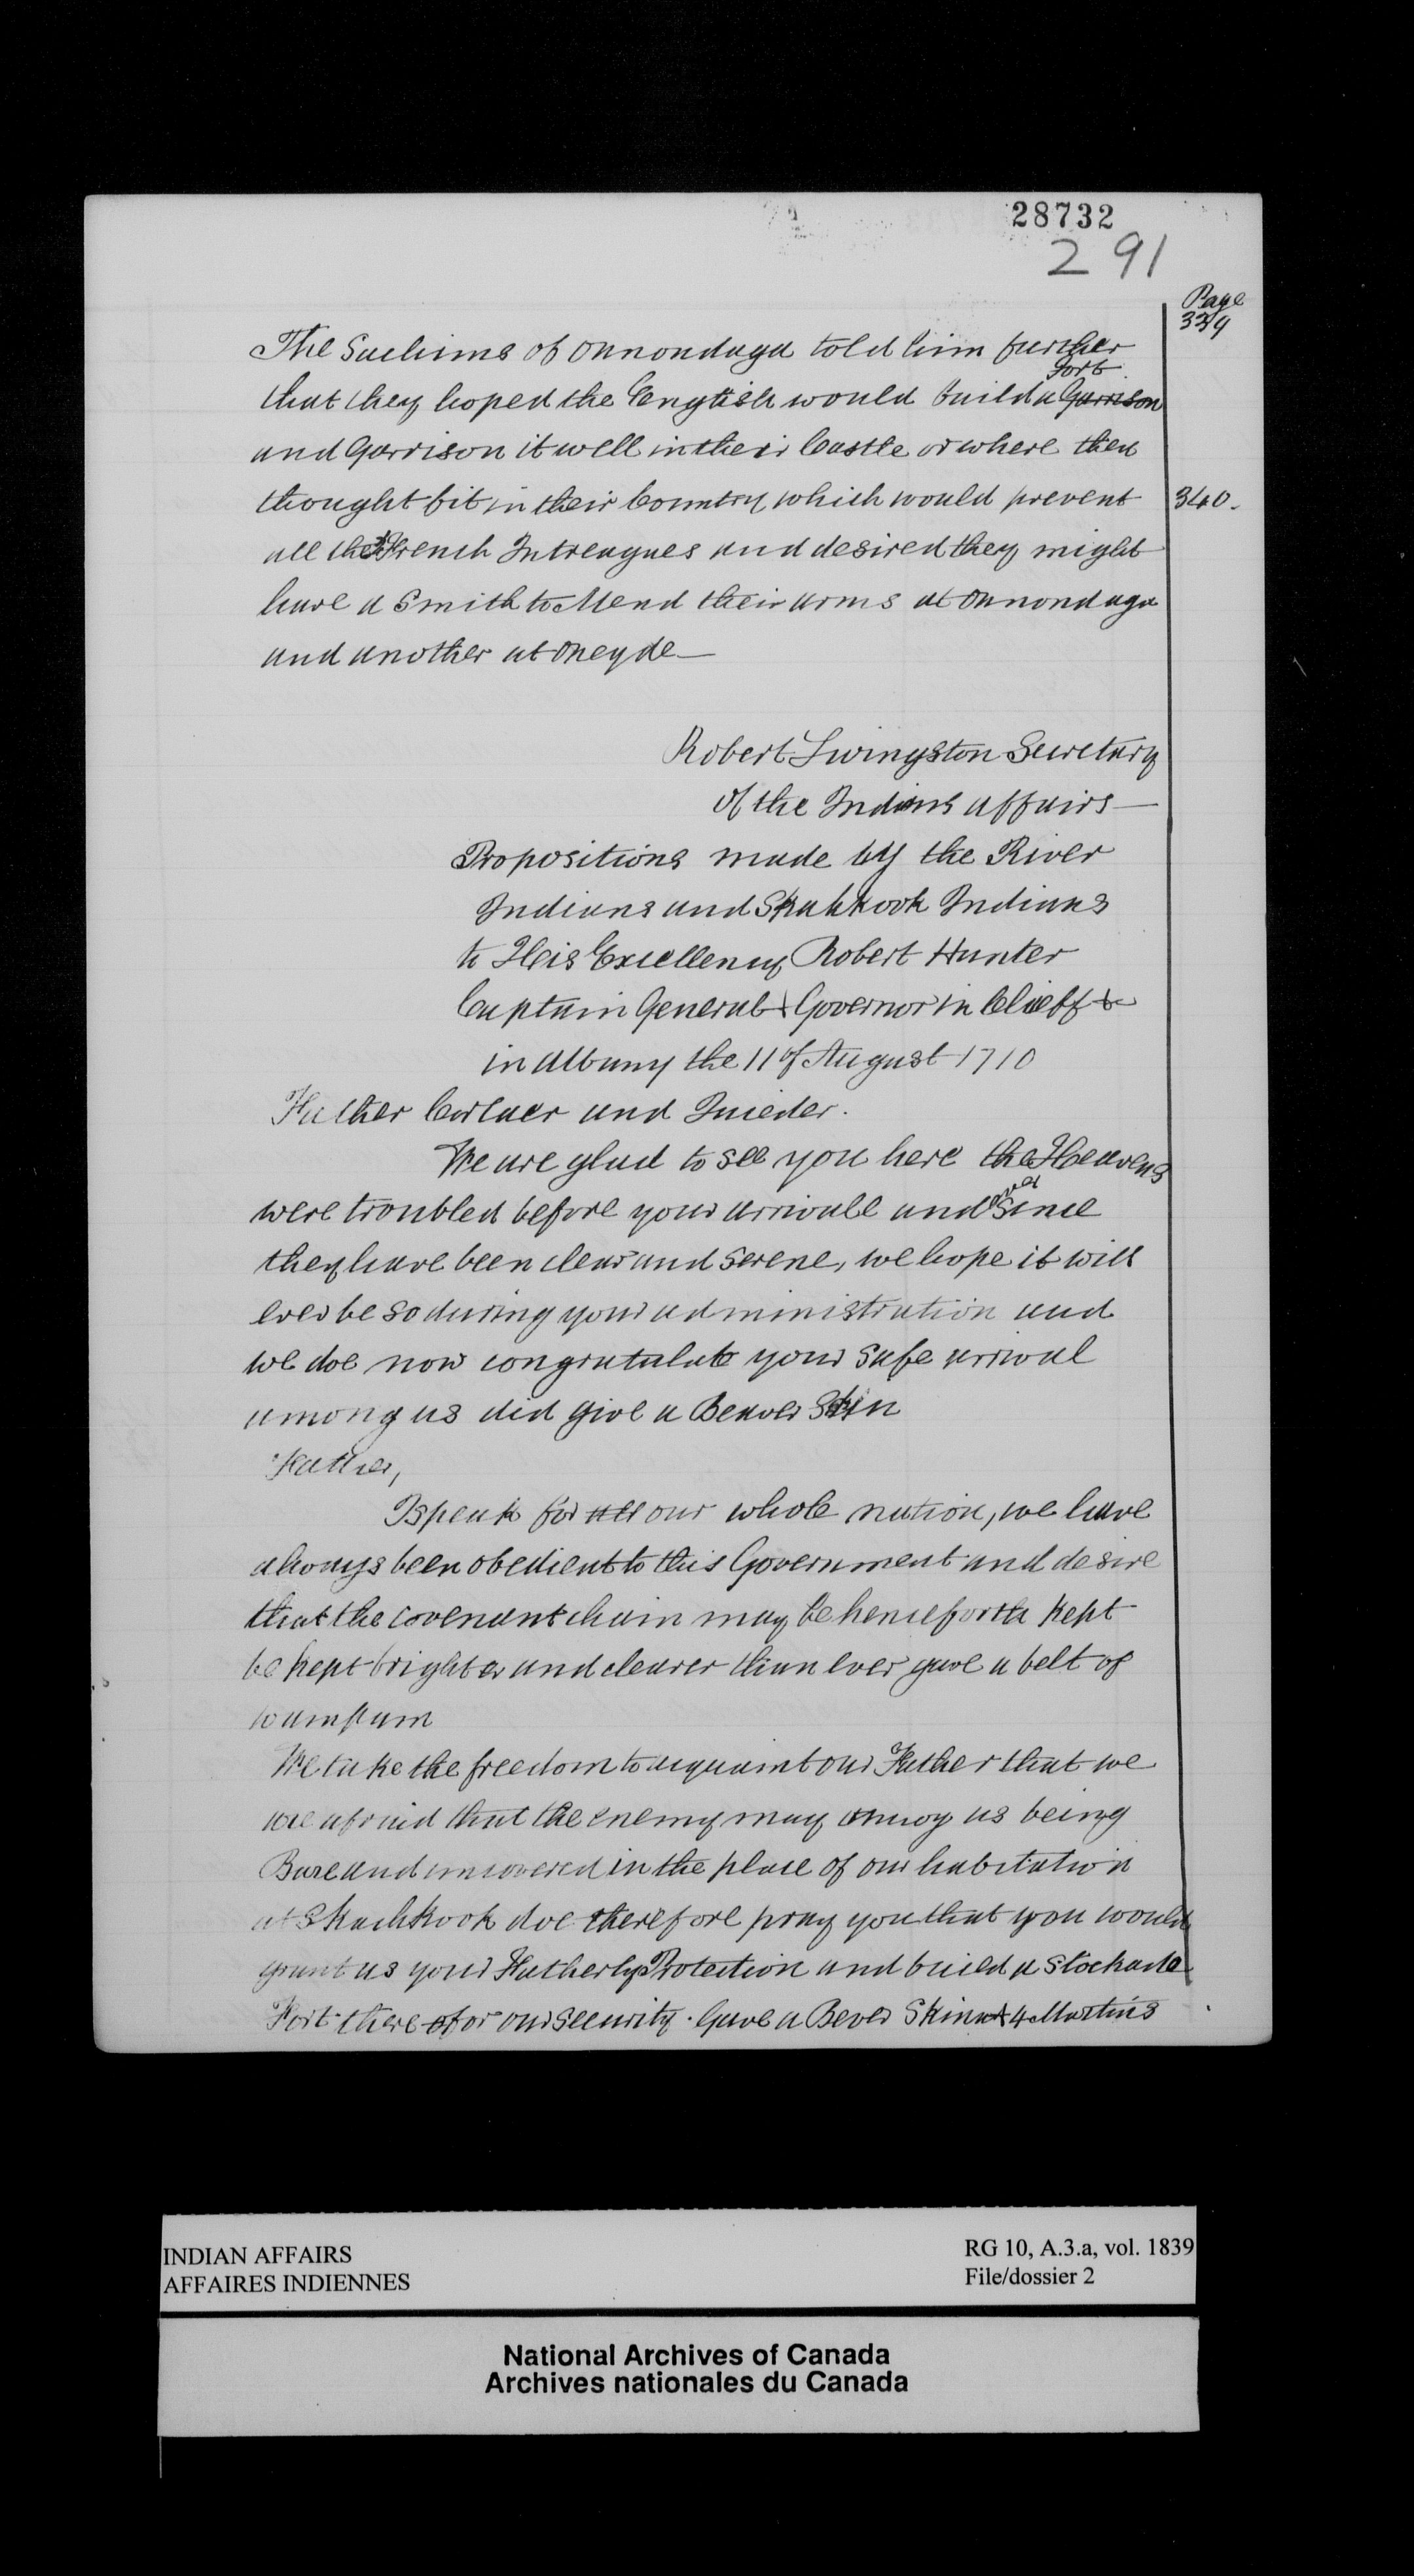 28732
291
Page
339
The Sachims of Onnondaga told him further
Fort
that they hoped the English would build a Garrison
and Garrison it well in their Castle or where they
thought fit in their Country which would prevent
340.
all the French Intreagues and desired they might
have a Smith to Mend their arms at Onnondaga
and another at Oneyde—
Robert Livingston Secretary
of the Indians affairs—
Propositions made by the River
Indians and Skahkook Indians
to His Excellency Robert Hunter
Captain General & Governor in Chieff &c
in Albany the 11 of August 1710
Father Corlaer and Quieder.
We are glad to see you here the Heavens
were troubled before your arrivall and ever Since
they have been clear and Serene, we hope it will
ever be so during your administration and
we doe now congratulate your Safe arrival
among us did give a Beaver Skin
Father,
I speak for all our whole nation, we have
always been obedient to this Government and desire
that the Covenant chain may be henceforth kept
be kept brighter and clearer than ever gave a belt of
wampum
We take the freedom to acquaint our Father that we
are afraid that the enemy may annoy us being
Bare and uncovered in the place of our habitation
at Skachkook doe therefore pray you that you would
grant us your Fatherly Protection and build a Stockade
Fort there for our Security. Gave a Bever Skin & 4 Martins
INDIAN AFFAIRS
AFFAIRES INDIENNES
RG 10, A.3.a, vol. 1839
File/dossier 2
National Archives of Canada
Archives nationales du Canada